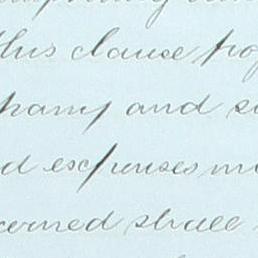 this clause
pany and
d expenses
cerned shall